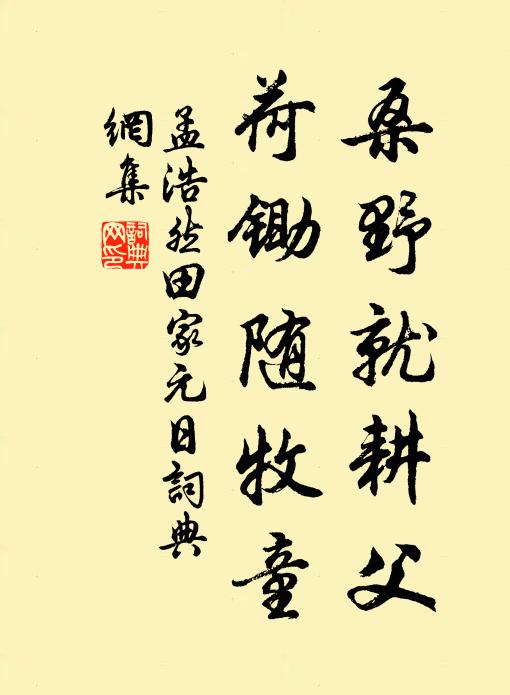 桑野就耕父
荷鋤随牧童
孟浩然田家元日詞典
網集
詞典
网印